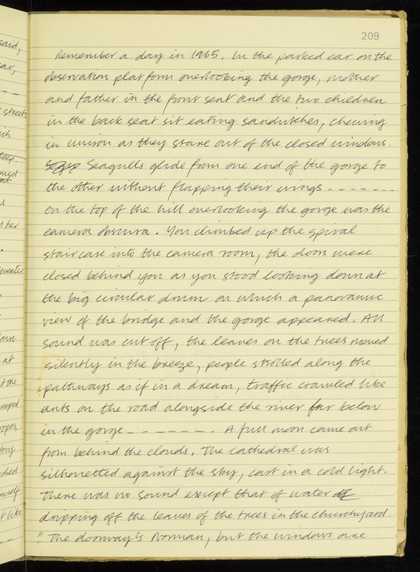 209
Remember a day in 1965. In the parked car on the
observation platform overlooking the gorge, mother
and father in the front seat and the two children
in the back seat sit eating sandwiches, chewing
in unison as they stare out of the closed windows.
Seagulls glide from one end of the gorge to
the other without flapping their wings - - - - - - -
On the top of the hill overlooking the gorge was the
camera obscura. You climbed up the spiral
staircase into the camera room, the doors were
closed behind you as you stood looking down at
the big circular drum on which a panoramic
view of the bridge and the gorge appeared. All
sound was cut off, the leaves on the trees moved
silently in the breeze, people strolled along the
pathways as if in a dream, traffic crawled like
ants on the road alongside the river far below
in the gorge - - - - - - - . A full moon came out
from behind the clouds. The cathedral was
silhouetted against the sky, cast in a cold light.
There was no sound except that of water
dripping off the leaves of the trees in the churchyard.
" The doorway's Norman, but the windows are